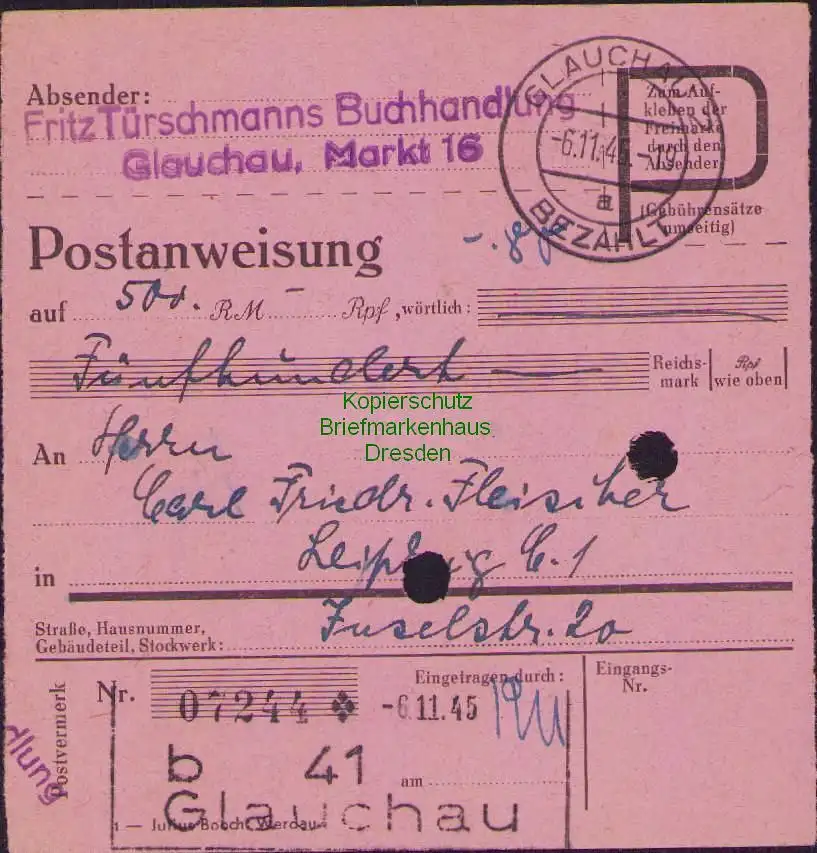 Absender:
Fritz Türschmanns Buchhandlung
Glauchau, Markt 16
GLAUCHAU
-6.11.45.-
a
BEZAHLT
Zum Auf-
kleben der
Freimarke
durch den
Absender
(Gebührensätze
umseitig)
Postanweisung
-.80
auf 500.- RM - Rpf, wörtlich:
Fünfhundert
Reichs-
mark
Rpf
wie oben
Kopierschutz
Briefmarkenhaus
Dresden
An Herrn
Carl Friedr. Fleischer
in Leipzig C.1
Straße, Hausnummer,
Gebäudeteil, Stockwerk: Inselstr. 20
Postvermerk
dlung
Nr. 07244
-6.11.45
Eingetragen durch:
Eingangs-
Nr.
b 41
am
Glauchau
1 — Julius Booch, Werdau